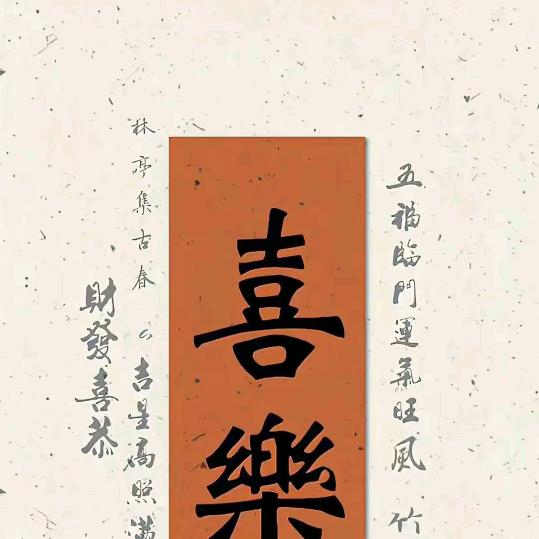 五福臨門運氣旺風 竹
喜樂
林亭集古春 吉星高照滿
財發喜恭